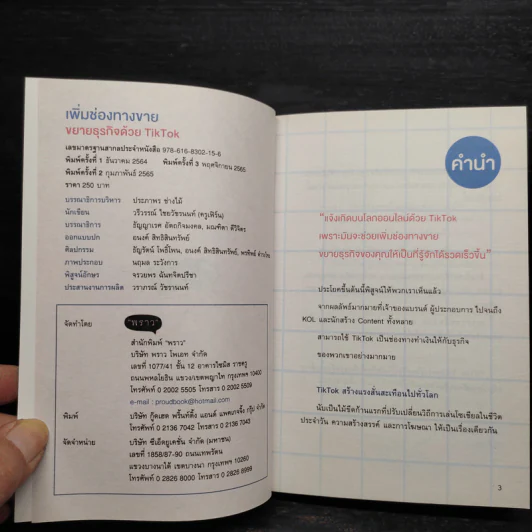 เพิ่มช่องทางขาย
ขยายธุรกิจด้วย TikTok
เลขมาตรฐานสากลประจำหนังสือ 978-616-8302-15-6
พิมพ์ครั้งที่ 1 ธันวาคม 2564 พิมพ์ครั้งที่ 3 พฤศจิกายน 2565
พิมพ์ครั้งที่ 2 กุมภาพันธ์ 2565
ราคา 250 บาท
บรรณาธิการบริหาร ประภาพร ช่างไม้
นักเขียน วริวรรณ์ ไชยวัชรานนท์ (ครูเฟิร์น)
บรรณาธิการ ธัญญาเรศ อัตถกิจมงคล, มณฑิตา ศิริจิตร
ออกแบบปก อนงค์ สิทธิสินทรัพย์
ศิลปกรรม ธัญรัตน์ โพธิ์โพน, อนงค์ สิทธิสินทรัพย์,
ภาพประกอบ นฤมล ระวังการ
พิสูจน์อักษร จรวยพร ฉันทจิตปรีชา
ประสานงานการผลิต วราภรณ์ วัชรานนท์
จัดทำโดย "พราว"
สำนักพิมพ์ "พราว"
บริษัท พราว โพเอท จำกัด
เลขที่ 1077/41 ชั้น 12 อาคารไซมิส ราชครู
ถนนพหลโยธิน แขวง/เขตพญาไท กรุงเทพฯ 10400
โทรศัพท์ 0 2002 5505 โทรสาร 0 2002 5509
e-mail : proudbook@hotmail.com
พิมพ์ บริษัท กู๊ดเฮด พริ้นท์ติ้ง แอนด์ แพคเกจจิ้ง กรุ๊ป จำกัด
โทรศัพท์ 0 2136 7042 โทรสาร 0 2136 7043
จัดจำหน่าย บริษัท ซีเอ็ดยูเคชั่น จำกัด (มหาชน)
เลขที่ 1858/87-90 ถนนเทพรัตน
แขวงบางนาใต้ เขตบางนา กรุงเทพฯ 10260
โทรศัพท์ 0 2826 8000 โทรสาร 0 2826 8999
คำนำ
"แจ้งเกิดบนโลกออนไลน์ด้วย TikTok
เพราะมันจะช่วยเพิ่มช่องทางขาย
ขยายธุรกิจของคุณให้เป็นที่รู้จักได้รวดเร็วขึ้น"
ประโยชข้นต้นนี้พิสูจน์ให้พวกเราเห็นแล้ว
จากผลลัพธ์มากมายที่เจ้าของแบรนด์ ผู้ประกอบการ ไปจนถึง
KOL และนักสร้าง Content ทั้งหลาย
สามารถใช้ TikTok เป็นช่องทางทำเงินให้กับธุรกิจ
ของพวกเขาอย่างมากมาย
TikTok สร้างแรงสั่นสะเทือนไปทั่วโลก
นับเป็นไม้ขีดก้านแรกที่ปรับเปลี่ยนวิถีการเล่นโซเชียลในชีวิต
ประจำวัน ความสร้างสรรค์ และการโฆษณา ให้เป็นเรื่องเดียวกัน
3